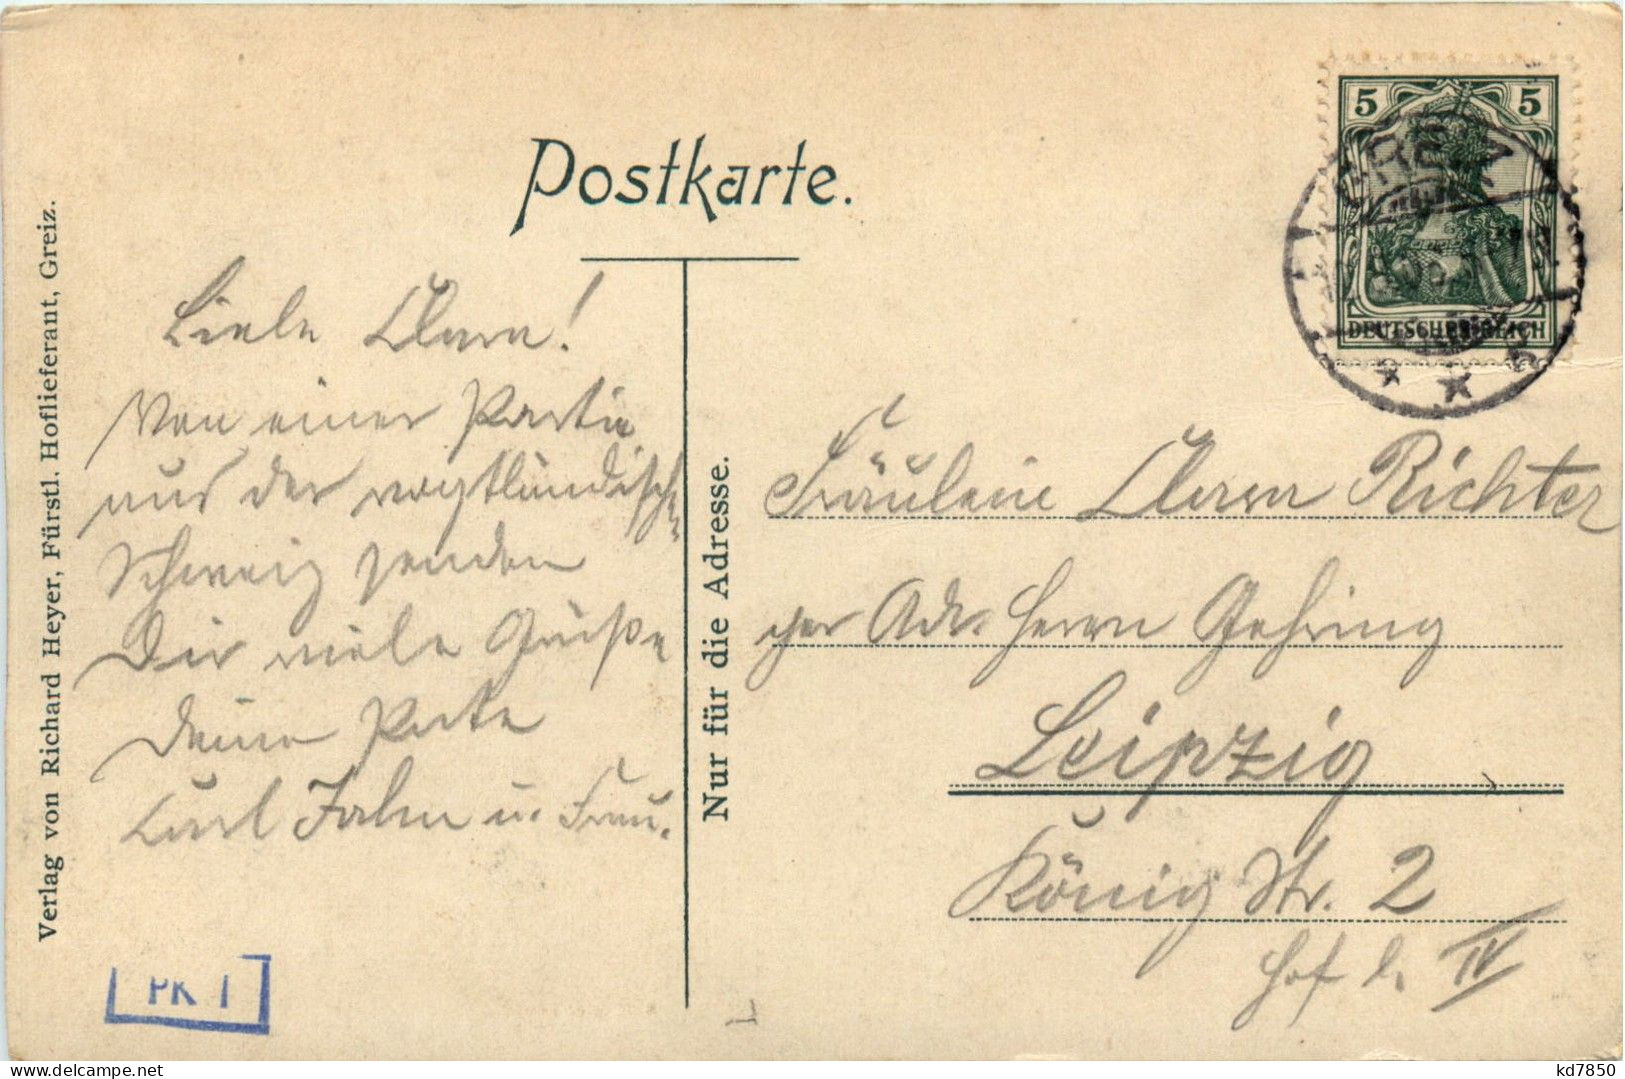 Postkarte.
Verlag von Richard Heyer, Fürstl. Hoflieferant, Greiz.
Liebe Clara!
Von einer Partie
aus der vogtländisch.
Schweiz senden
Dir viele Grüße
Deine Pate
Curl Jahn u. Frau.
PK I
Nur für die Adresse.
5 5
DEUTSCHES REICH
Fräulein Clara Richter
per Adr. Herrn Gehring
Leipzig
König Str. 2
Hof l. IV
kd7850